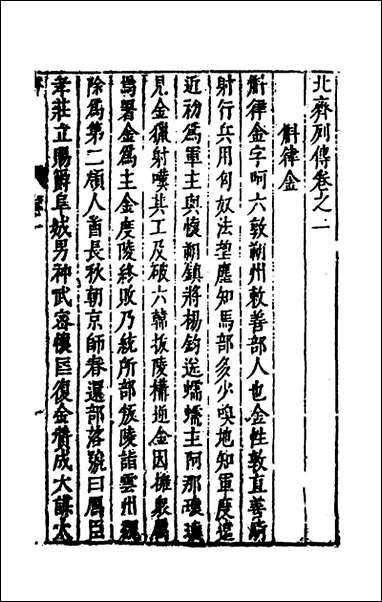 北齊列傳卷之一
斛律金
斛律金字阿六敦朔州敕善部人也金性敦直善騎
射行兵用匈奴法望塵知馬部多少嗅地知軍度遠
近初為軍主與懷朔鎮將楊鈞送蠕蠕主阿那瓌瓌
見金獵射嘆其工及破六韓拔陵構逆金因擁衆屬
焉署金為主金度陵終敗乃統所部叛陵詣雲州魏
除為第二領人酋長秋朝京師春還部落號曰鴈臣
孝莊立賜爵阜城男神武密懷匡復金贊成大謀太